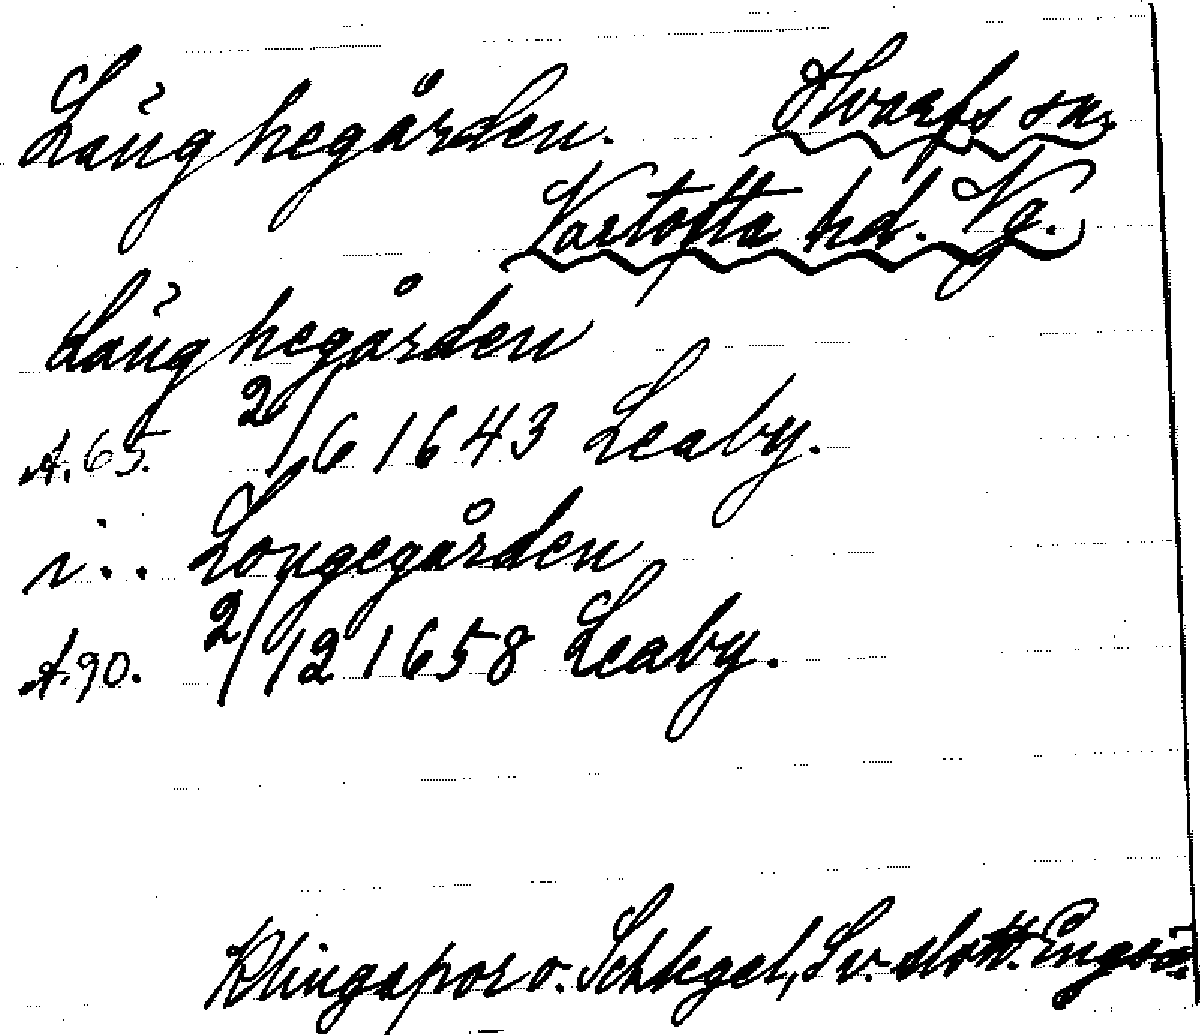 Långhegården. Hvarfs sn,
Vartofta hd. Vg.
Långhegården
A. 65. 2/6 1643 Leaby.
i.. Longegården
A. 90. 2/12 1658 Leaby.
Klingspor o. Schlegel, Sv. slott. Engsö.